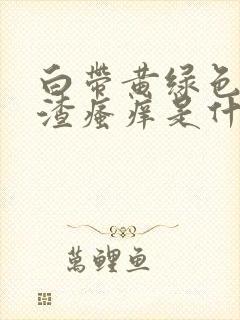 白帶黄绿色
渣瘙痒是什
萬鲤鱼